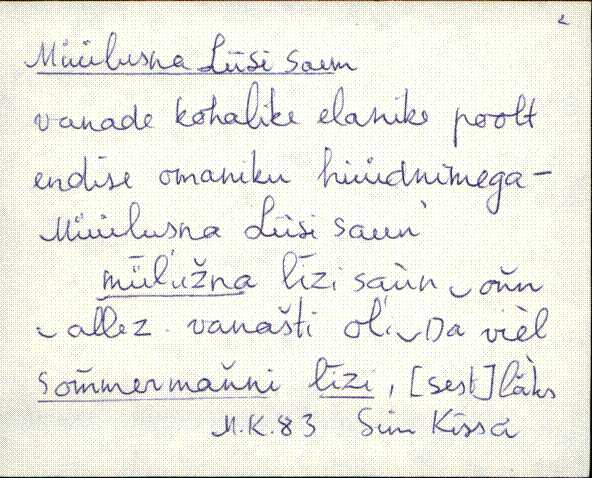 2
Müülusna Liisi saun
vanade kohalike elanike poolt
endise omaniku hüüdnimega -
Müülusna Liisi saun
mǖl'užna līzi saùn ‿ on̆n
‿ allez. vanašti ol'i ‿ Da vièl
som̆merman̆ni līzi, [sest] läks
M.K. 83 Siin Kissa